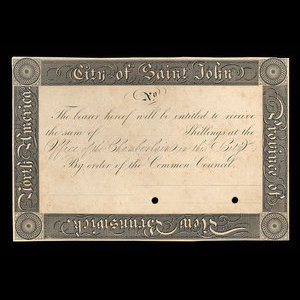 City of Saint John
North America
No.
Province of
The bearer hereof will be entitled to receive
the sum of Shillings at the
Office of the Chamberlain in the City
By order of the Common Council,
New Brunswick